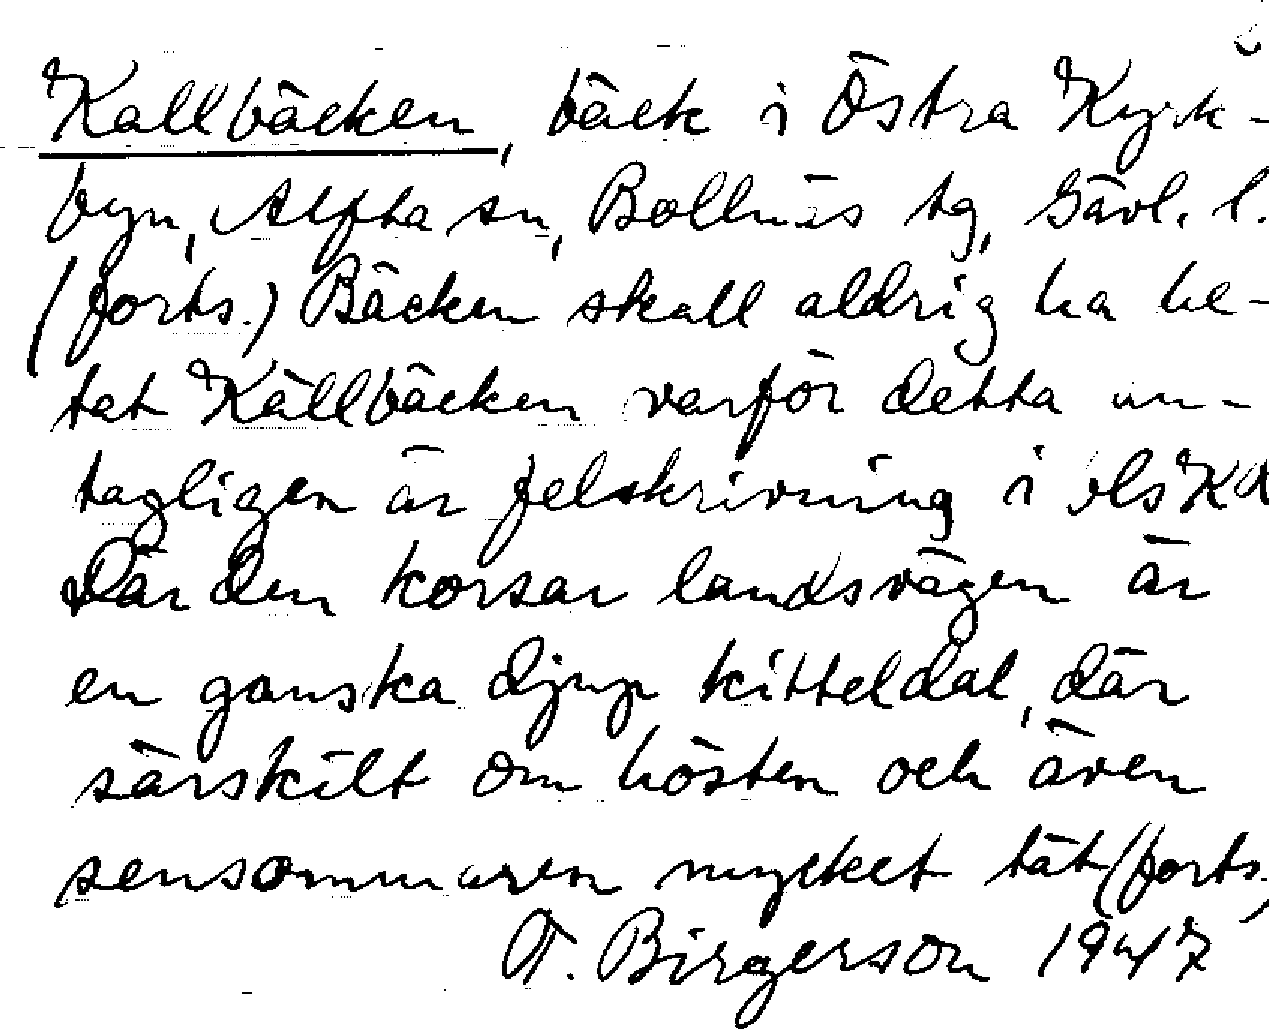 Kallbäcken, bäck i Östra Kyrk-
byn, Alfta sn, Bollnäs tg, Gävl. l.
(forts.) Bäcken skall aldrig ha he-
tat Källbäcken varför detta an-
tagligen är felskrivning i
Där den korsar landsvägen är
en ganska djup kitteldal, där
särskilt om hösten och även
sensommaren mycket tät (forts.)
T. Birgerson 1947